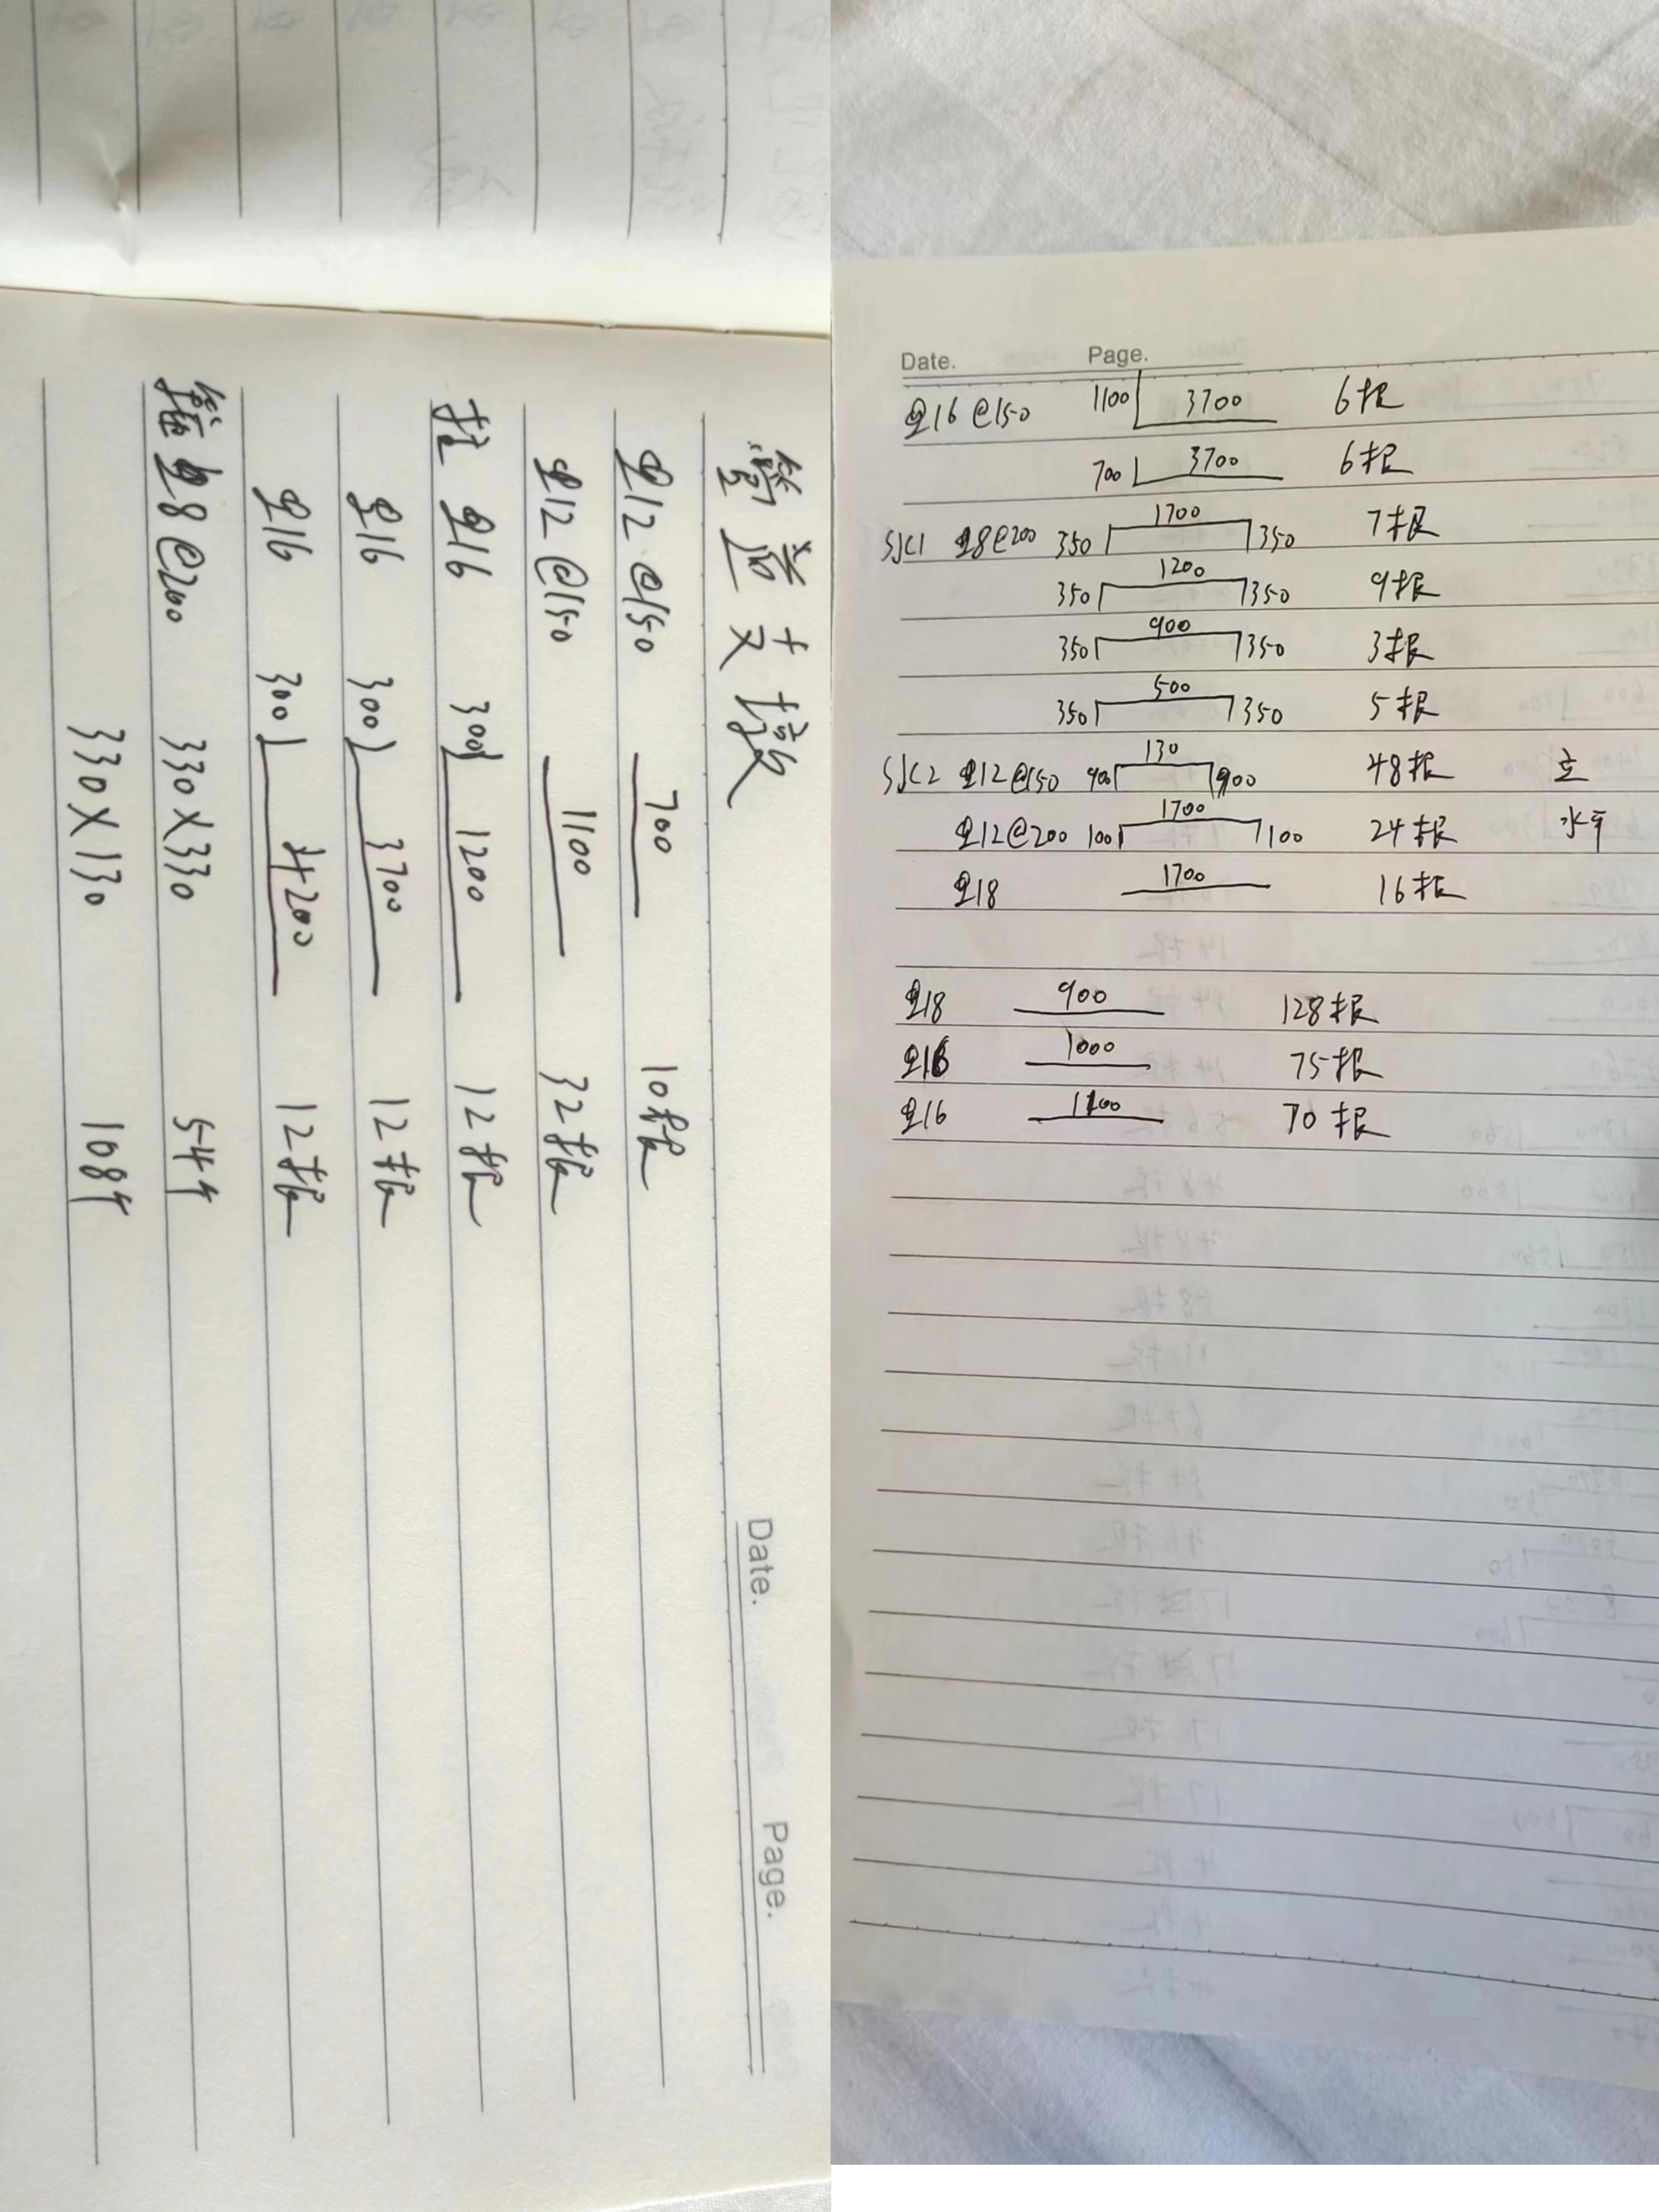 Date. Page.
管道支墩
⌀12 @150 700 10根
⌀12 @150 1100 32根
柱 ⌀16 300 1200 12根
⌀16 300 3700 12根
⌀16 300 4200 12根
箍 ⌀8 @200 330X330 54个
330X130 108个
Date. Page.
⌀16 @150 1100 3700 6根
700 3700 6根
SJC1 ⌀8@200 350 1700 350 7根
350 1200 350 9根
350 900 350 3根
350 500 350 5根
SJC2 ⌀12@150 900 130 900 48根 立
⌀12@200 100 1700 100 24根 水平
⌀18 1700 16根
⌀18 900 128根
⌀16 1000 75根
⌀16 70根